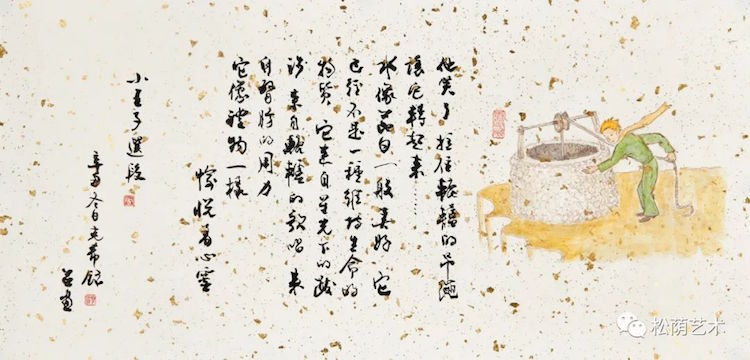 他笑了 拉住轆轤的吊繩
讓它轉起来……
水像節日一般美好 它
已經不是一種維持生命的
物質 它来自星光下的跋
涉 来自轆轤的歌唱 来
自臂膀的用力
它像禮物一樣
愉悦着心靈
小王子選段
辛丑冬日克希錄
畫
松荫艺术